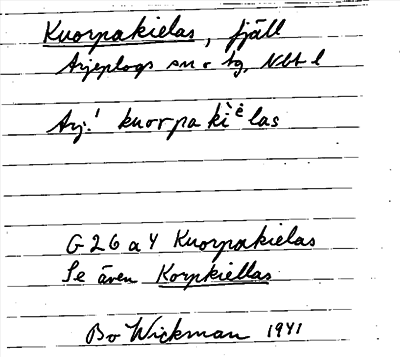 Kuorpakielas, fjäll
Arjeplogs sn o tg, Nbt l
Arj.! kuorpakiè̀las
G 26 a 4 Kuorpakielas
Se även Korpkiellas
Bo Wickman 1941